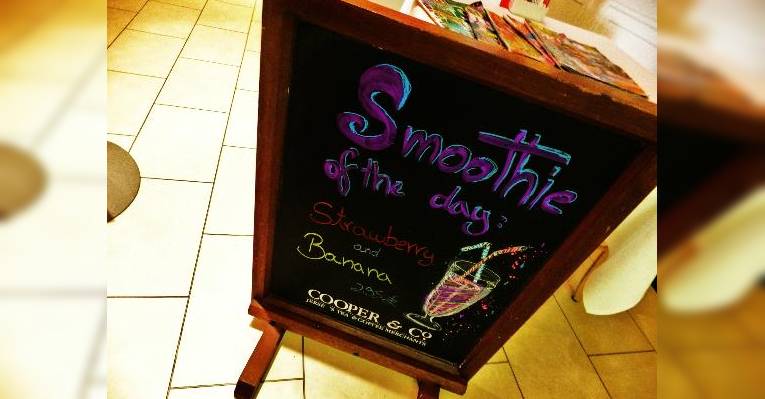 Smoothie
of the day:
Strawberry
and
Banana
COOPER & Co
TEA & COFFEE MERCHANTS